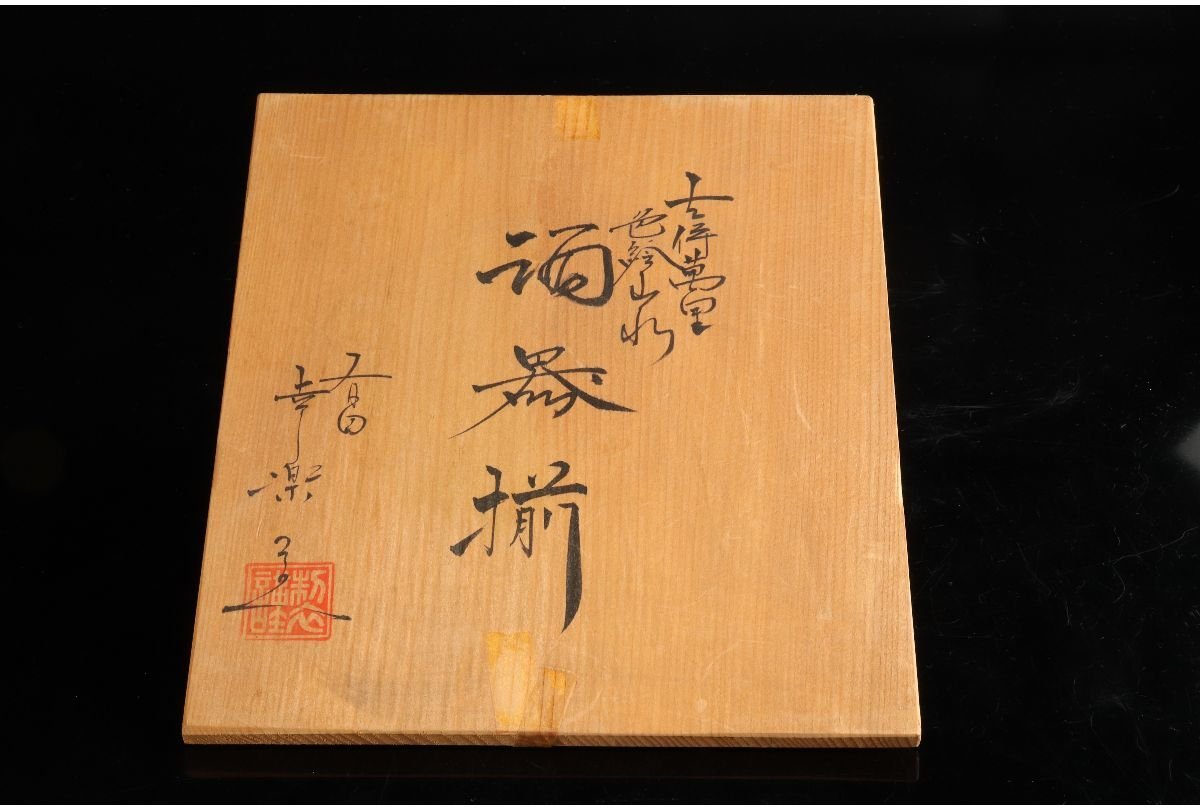 古伊萬里
色絵山水
酒器揃
有田
幸楽造